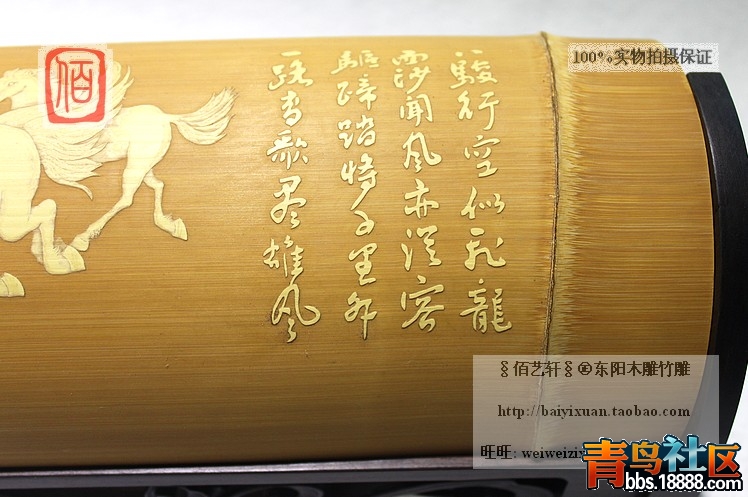 駿行空似飛龍
聞風亦從容
蹄踏將千里外
一路高歌尽雄風
佰
100%实物拍摄保证
§佰艺轩§®东阳木雕竹雕
http://baiyixuan.taobao.com
旺旺: weiweizi
青鸟社区
bbs.18888.com